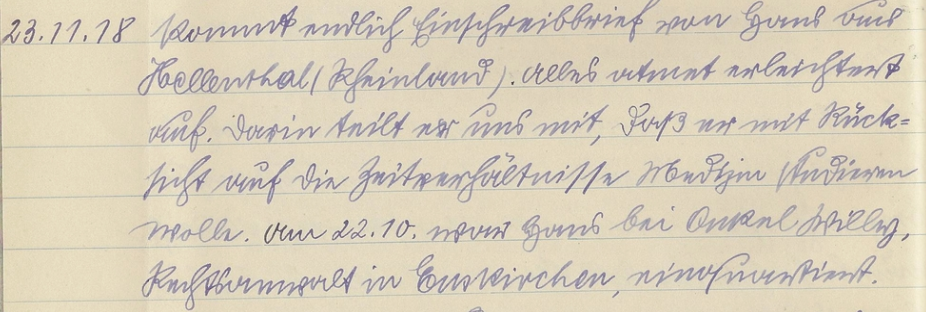 23.11.18 Kommt endlich Einschreibbrief von Hans aus
Hellenthal (Rheinland). Alles atmet erleichtert
auf. Darin teilt er uns mit, daß er mit Rück-
sicht auf die Zeitverhältnisse Medizin studieren
wolle. Am 22.10. war Hans bei Onkel Willy,
Rechtsanwalt in Euskirchen, einquartiert.